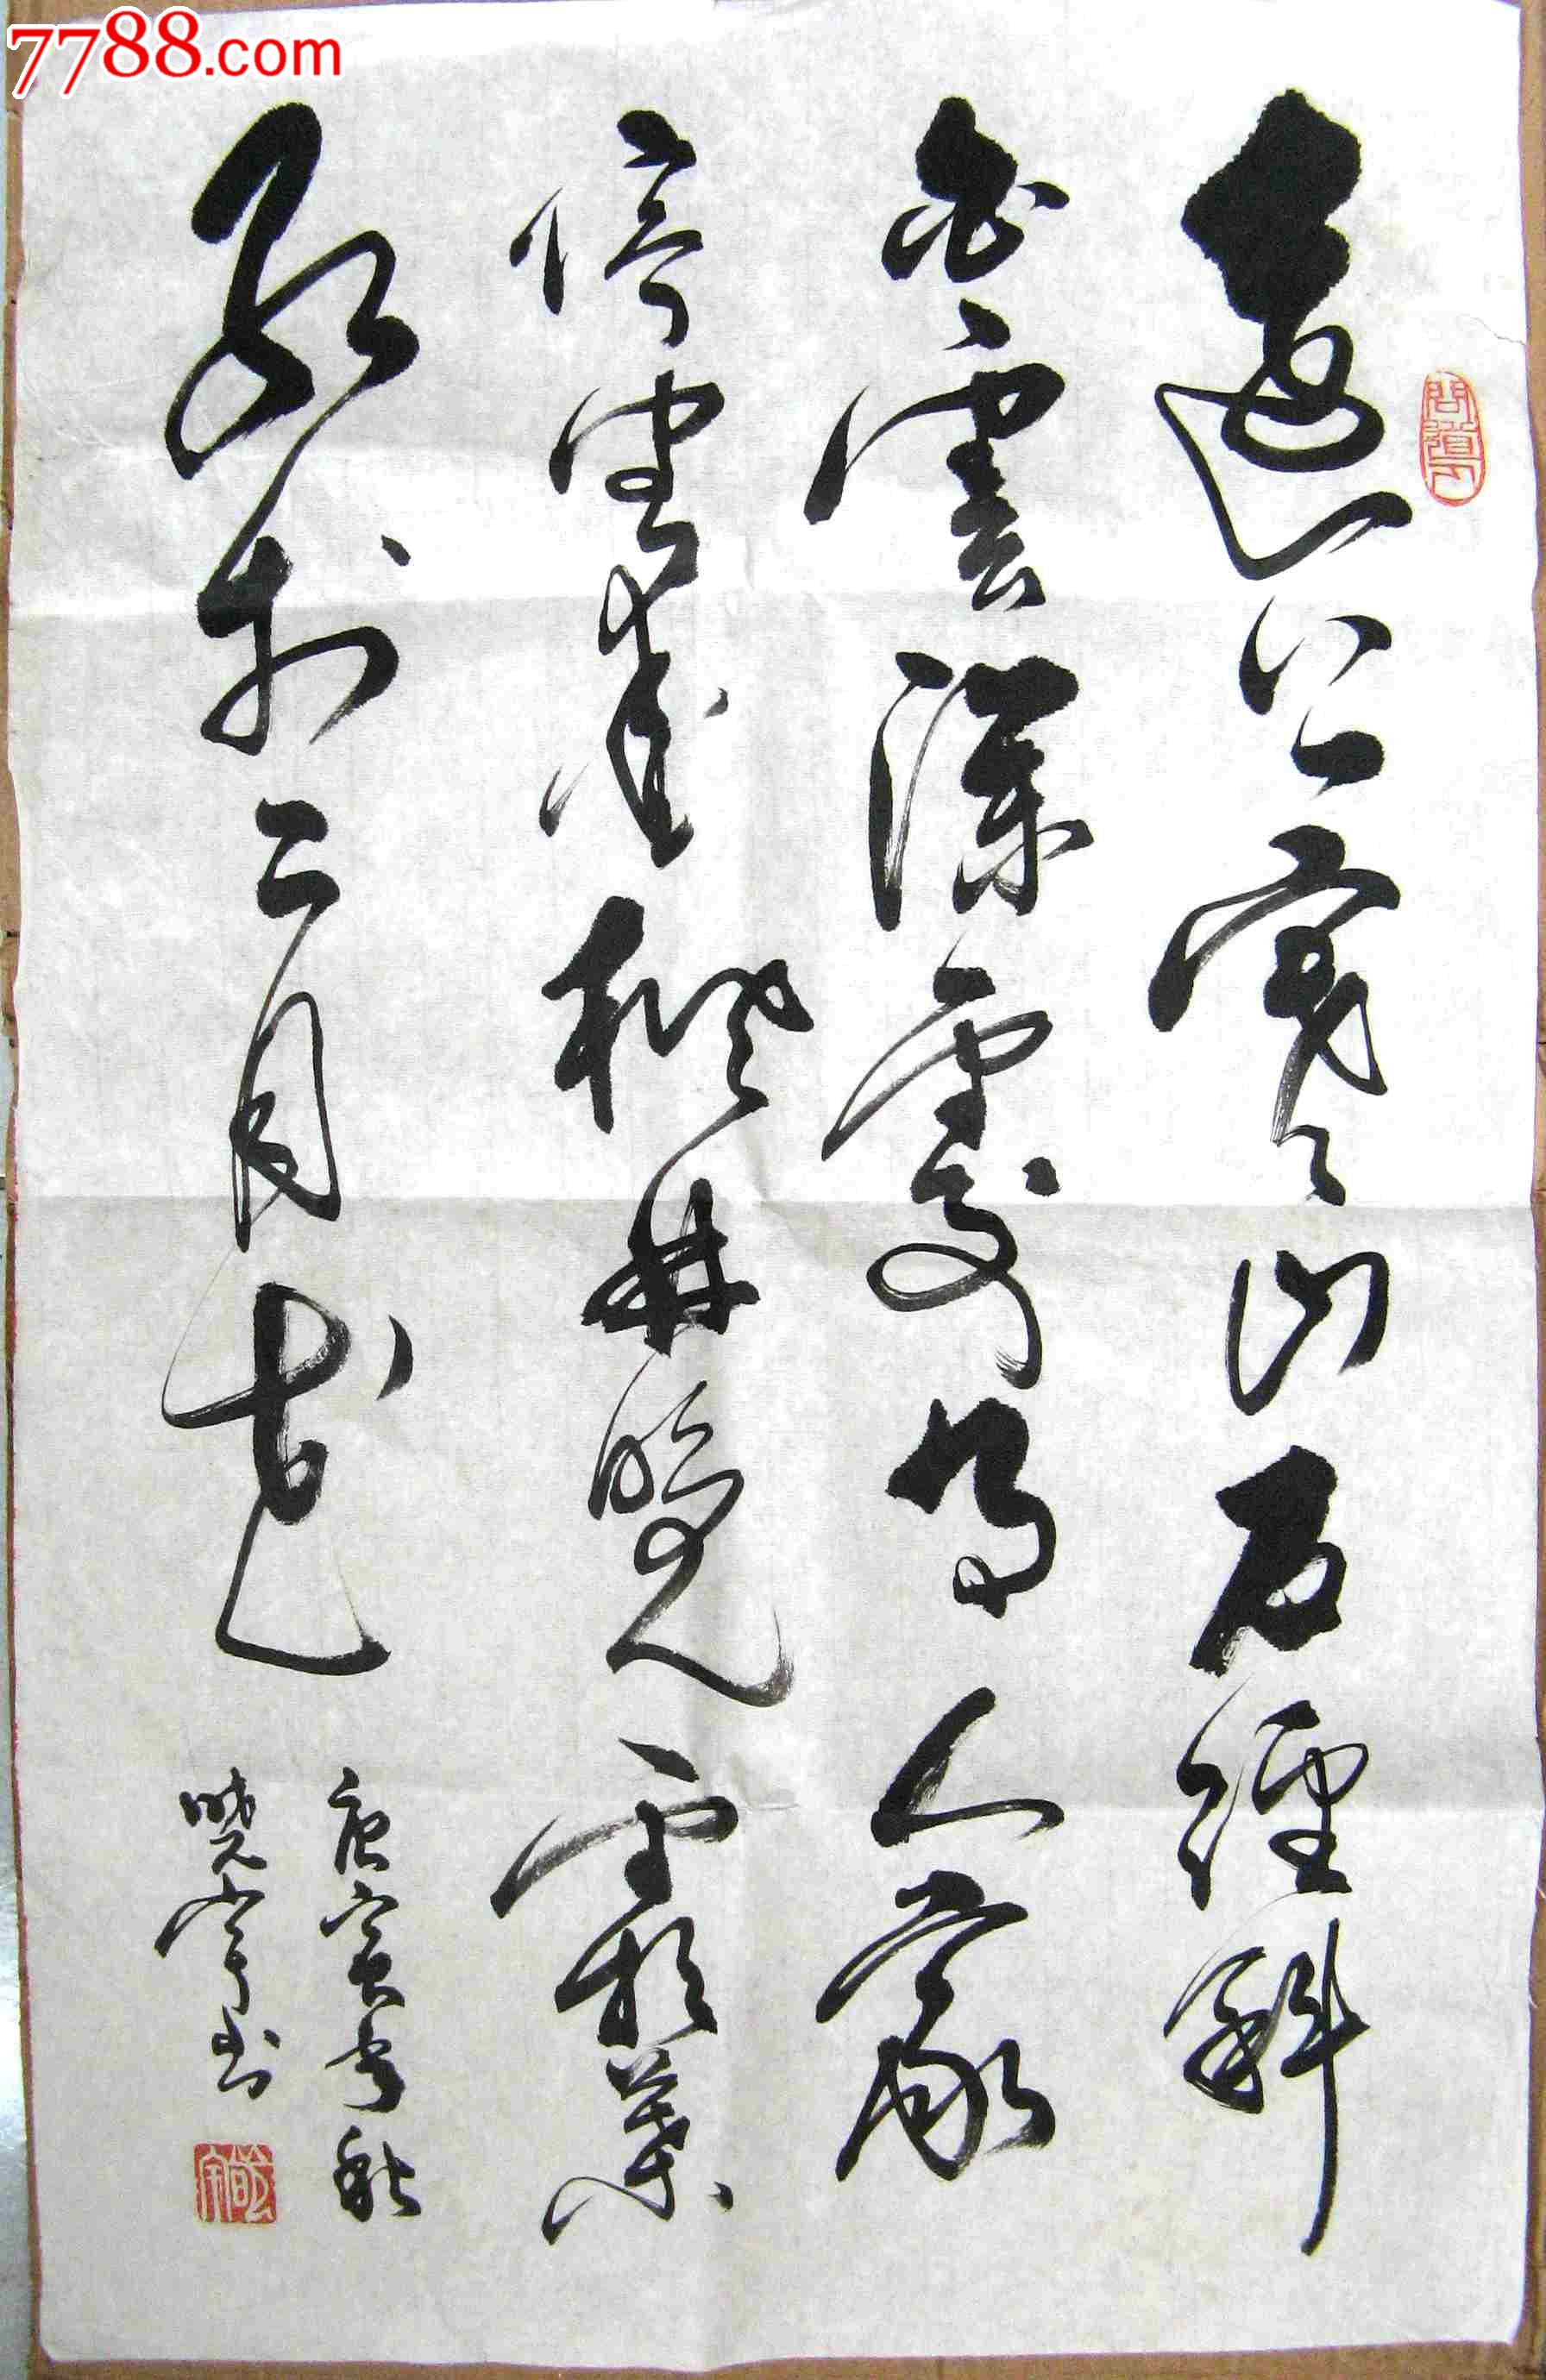 7788.com
遠上寒山石徑斜
白雲深處有人家
停車坐愛楓林晚霜葉
紅於二月花
庚寅年秋
曉寧书